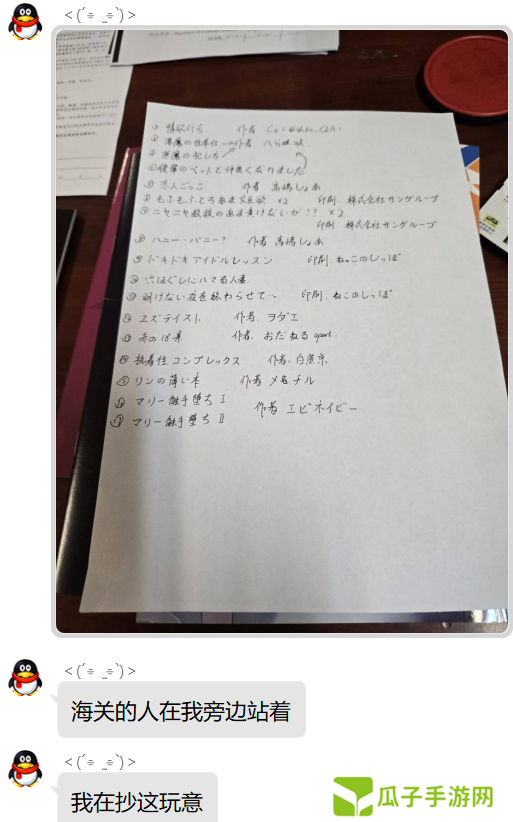 <(´÷ ‗ ÷`)>
① 情欲行為 作者
② 悪魔の 作者 八尺
③ 悪魔の
④ 後輩のペットと仲良くなりました
⑤ 恋人ごっこ 作者 高嶋しょあ
⑥ もふもふとろあま ×2 印刷 株式会社サングループ
⑦ ニヤニヤ教授のあま 負けないが!? ×2
印刷 株式会社サングループ
⑧ ハニー・バニー? 作者 高嶋しょあ
⑨ ドキドキアイドルレッスン 印刷 ねこのしっぽ
⑩ 穴ほぐしにハマる人妻
⑪ 明けない夜を終わらせて… 印刷 ねこのしっぽ
⑫ エズテイスト 作者 ヲダエ
⑬ 赤の 果 作者 おだねる apart.
⑭ 執着性コンプレックス 作者 白原京
⑮ リンの薄い本 作者 メモチル
⑯ マリー触手堕ち Ⅰ
作者 エビネイビー
⑰ マリー触手堕ち Ⅱ
<(´÷ ‗ ÷`)>
海关的人在我旁边站着
<(´÷ ‗ ÷`)>
我在抄这玩意
瓜子手游网